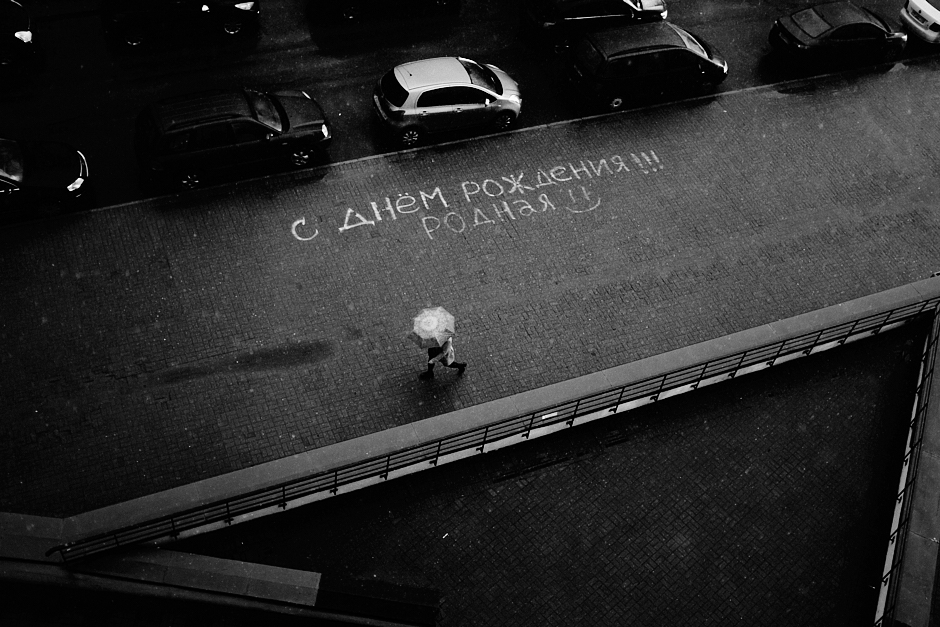 С ДНЁМ РОЖДЕНИЯ!!!
РОДНАЯ !!